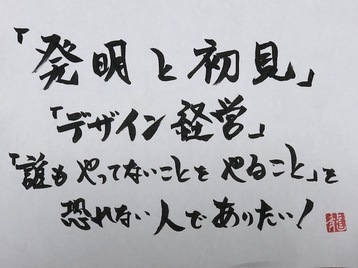 「発明と初見」
「デザイン経営」
「誰もやってないことをやること」を
恐れない人でありたい!
龍